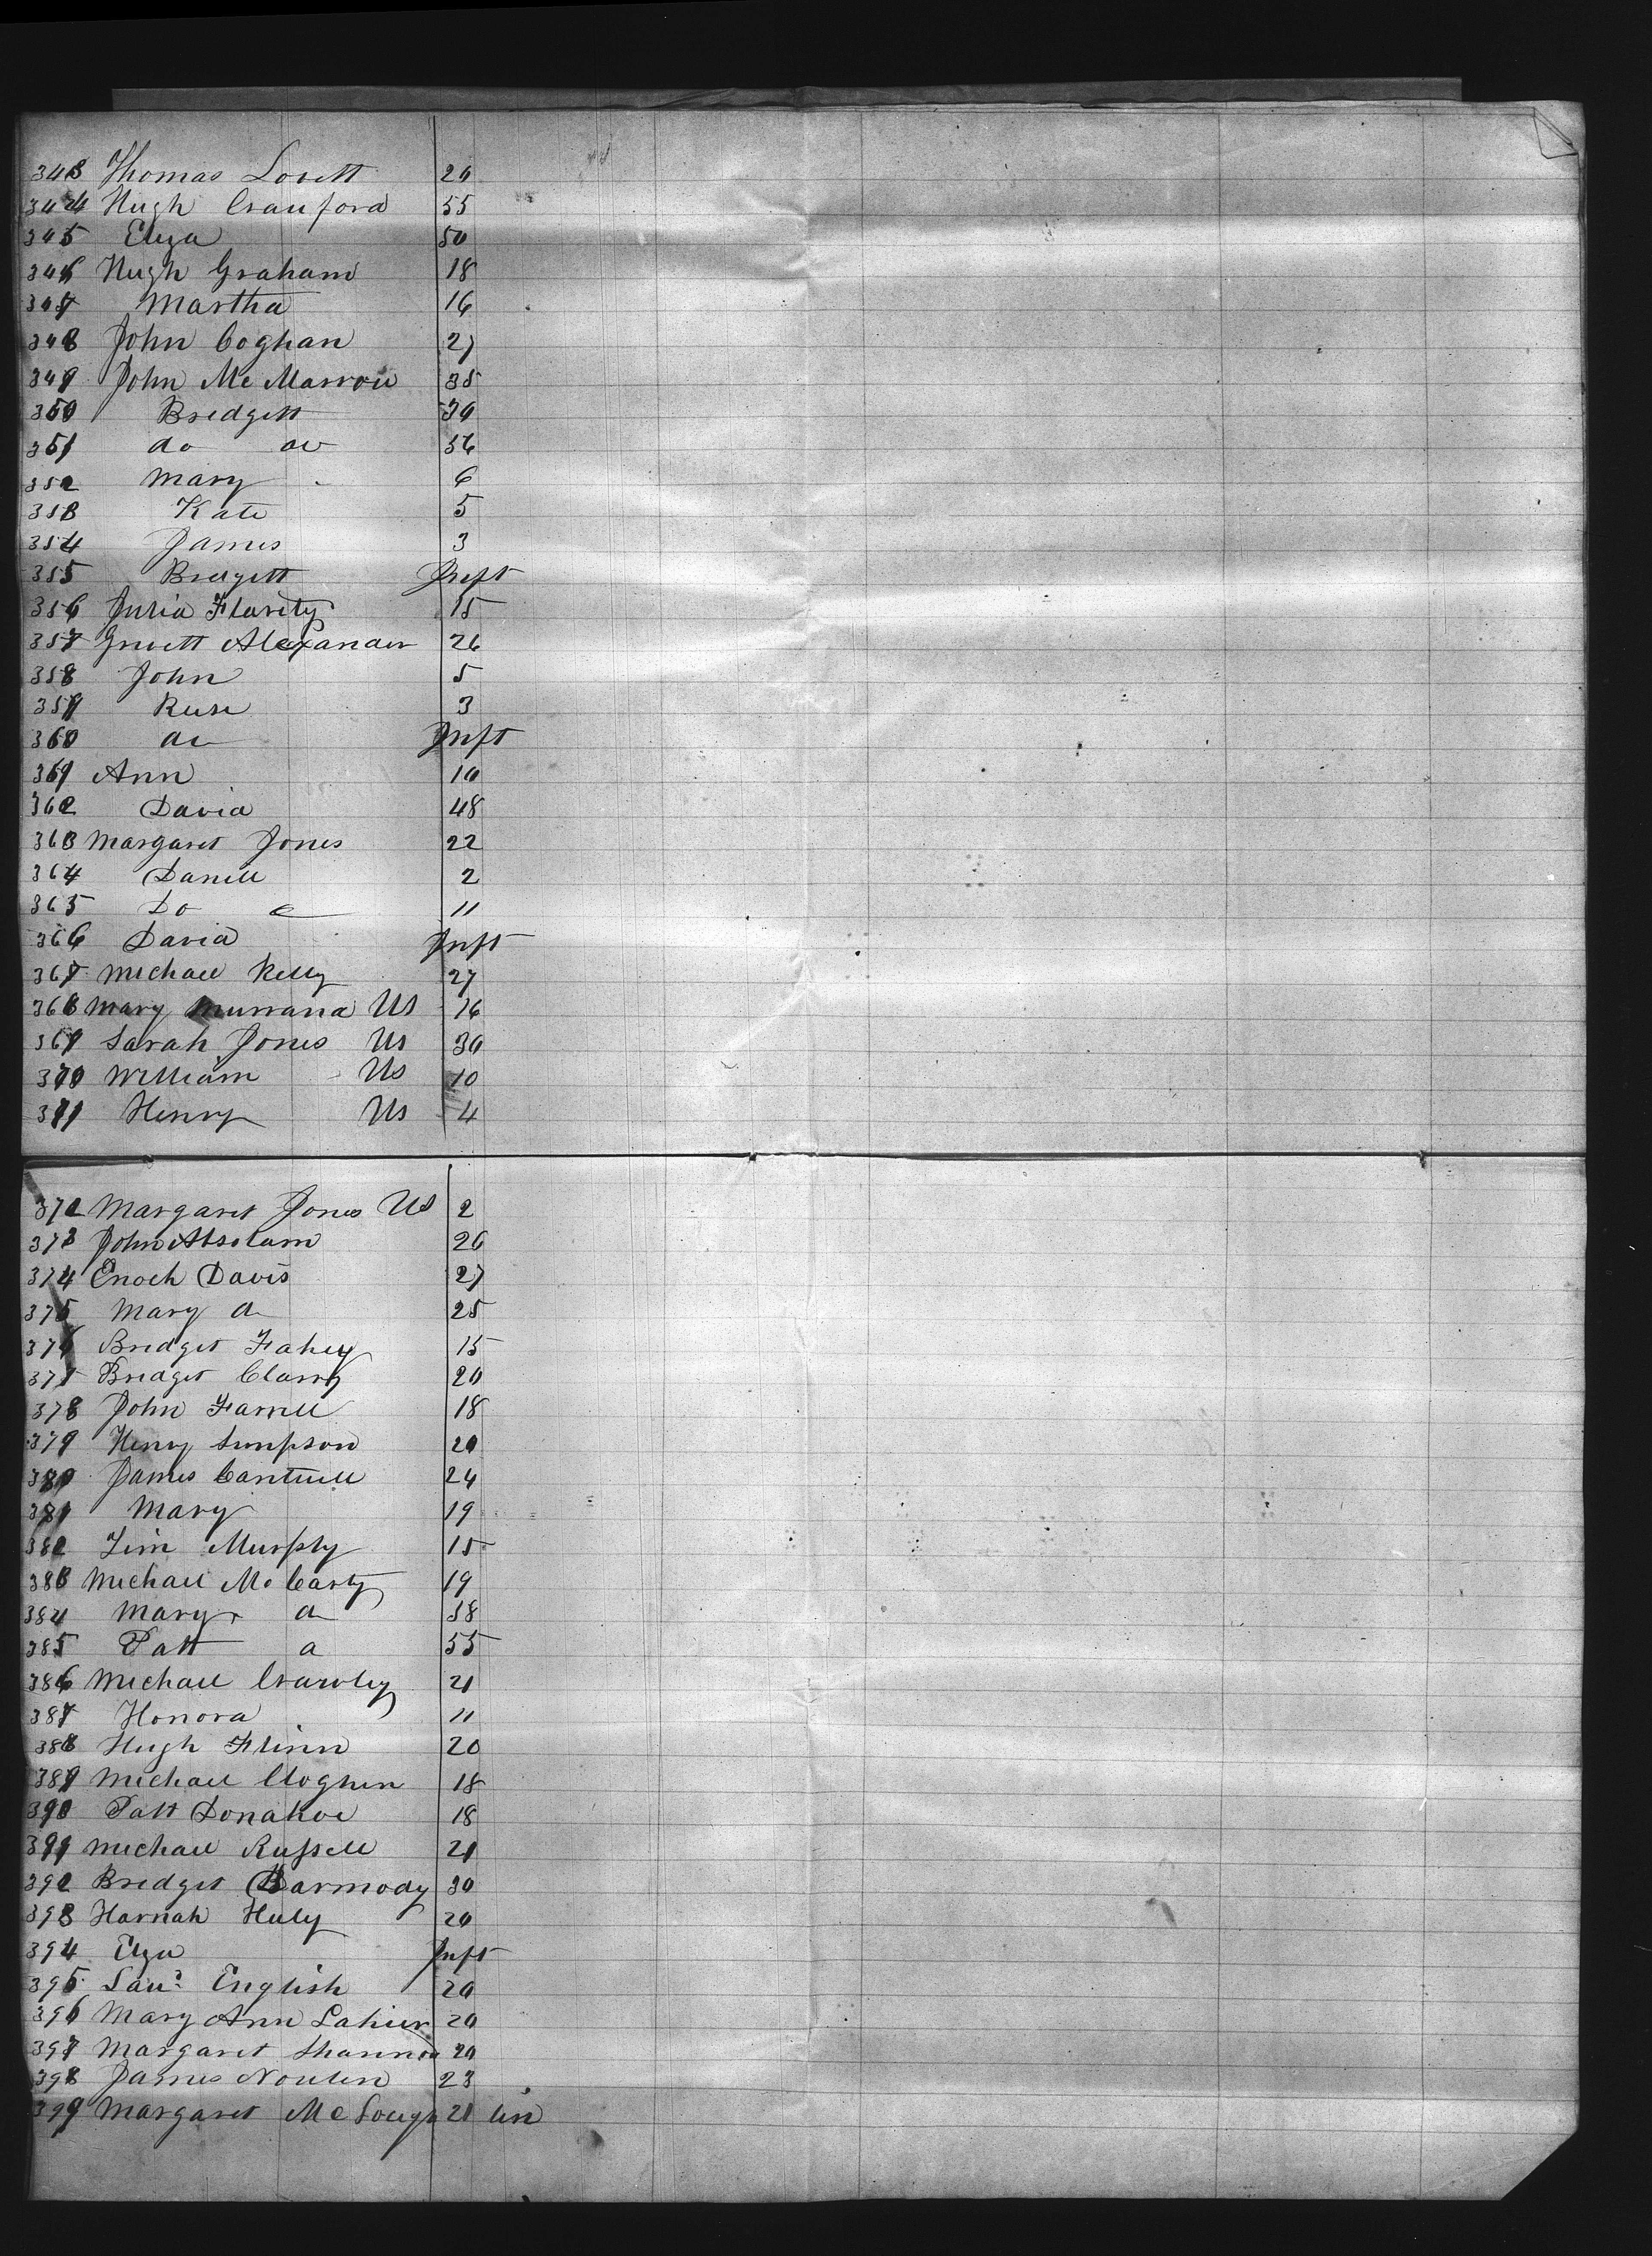 343 Thomas Lovett 20
344 Hugh Crauford 55
345 Eliza 50
346 Hugh Graham 18
347 Martha 16
348 John Coghan 27
349 John Mc Marrow 35
350 Bridgett 30
351 do do 56
352 Mary 6
353 Kate 5
354 James 3
355 Bridgett Inft
356 Julia Flarity 15
357 Alexander 26
358 John 5
359 3
360 do Inft
361 Ann 10
362 David 48
363 Margaret Jones 22
364 Daniell 2
365 Do 11
366 David Inft
367 Michael Kelly 27
368 Mary US 16
369 Sarah Jones US 30
370 William US 10
371 Henry US 4
372 Margaret Jones US 2
373 John Absolam 26
374 Enoch Davis 27
375 Mary do 25
376 Bridget Fahey 15
377 Bridget Clarry 20
378 John Farrell 18
379 Henry Simpson 20
380 James Cantwell 24
381 Mary 19
382 Tim Murphy 15
383 Michael McCarty 19
384 Mary do 58
385 Patt do 55
386 Michael Crawley 21
387 Honora 11
388 Hugh Flinn 20
389 Michael Cloghen 18
390 Patt Donahoe 18
391 Michael Russell 21
392 Bridget Darmody 30
393 Hannah Huly 20
394 Eliza Inft
395 Lau? English 20
396 Mary Ann Lahier 20
397 Margaret Shannon 20
398 James Noulen 23
399 Margaret McLough 21 lin